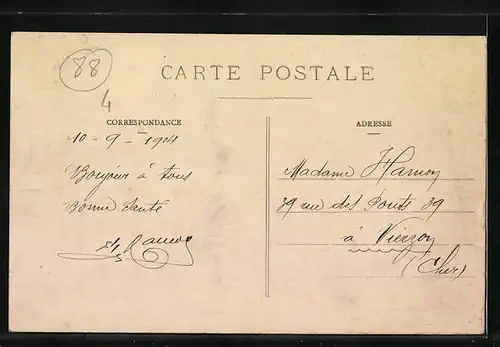 88
4
CARTE POSTALE
CORRESPONDANCE
10-9-1914
Bonjour à tous
Bonne Santé
ADRESSE
Madame Hamon
39 rue des Ponts 39
à Vierzon
(Cher)